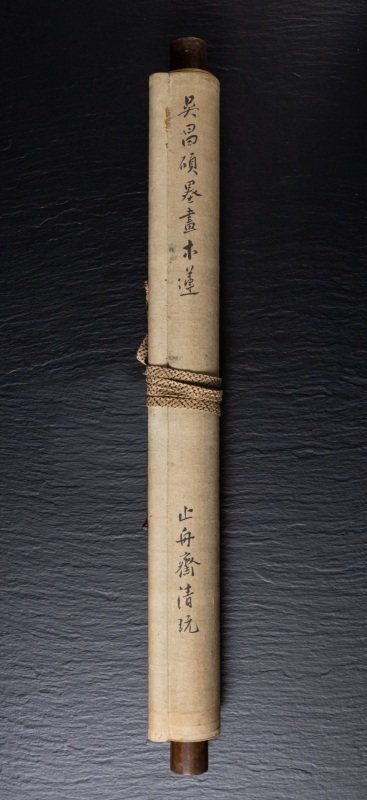 吳昌碩墨畫木蓮
止舟齋清玩